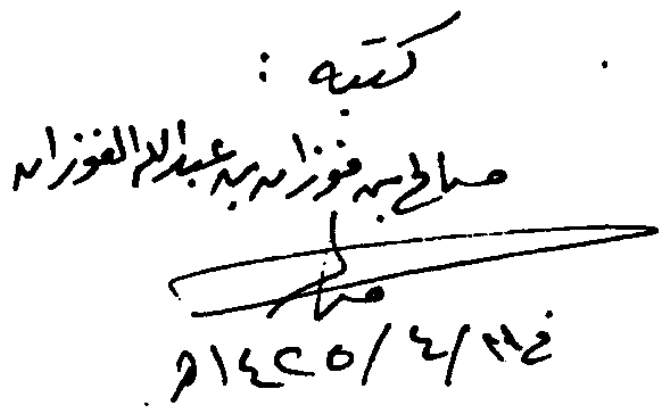 كتبه :
صالح بن فوزان بن عبدالله الفوزان
صالح
في /٤/١٤٢٥هـ